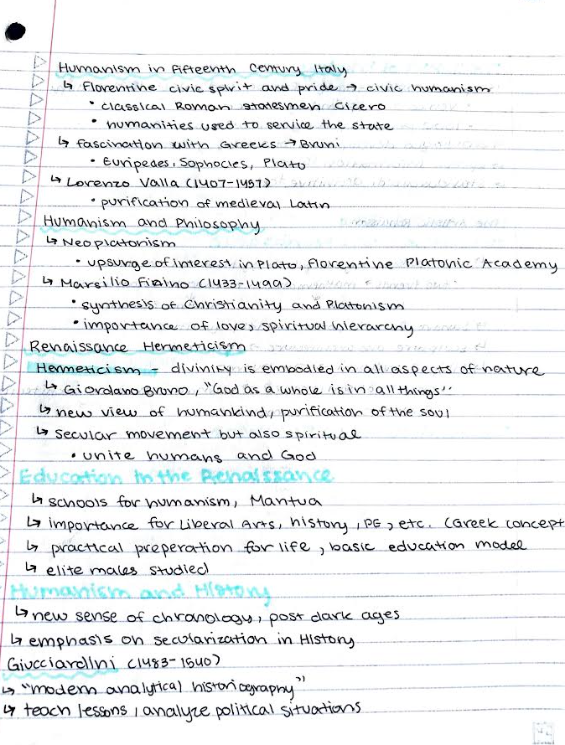 Humanism in Fifteenth Century Italy
↳ Florentine civic spirit and pride → civic humanism
• classical Roman statesmen Cicero
• humanities used to service the state
↳ fascination with Greeks → Bruni
• Euripedes, Sophocles, Plato
↳ Lorenzo Valla (1407-1457)
• purification of medieval Latin
Humanism and Philosophy
↳ Neoplatonism
• upsurge of interest in Plato, Florentine Platonic Academy
↳ Marsilio Fizino (1433-1499)
• synthesis of Christianity and Platonism
• importance of love, spiritual hierarchy
Renaissance Hermeticism
Hermeticism - divinity is embodied in all aspects of nature
↳ Giordano Bruno, "God as a whole is in all things"
↳ new view of humankind, purification of the soul
↳ secular movement but also spiritual
• unite humans and God
Education in the Renaissance
↳ schools for humanism, Mantua
↳ importance for Liberal Arts, history, PE, etc. (Greek concept
↳ practical preperation for life, basic education model
↳ elite males studied
Humanism and History
↳ new sense of chronology, post dark ages
↳ emphasis on secularization in History
Giucciardini (1483-1540)
↳ "modern analytical historiography"
↳ teach lessons, analyze political situations